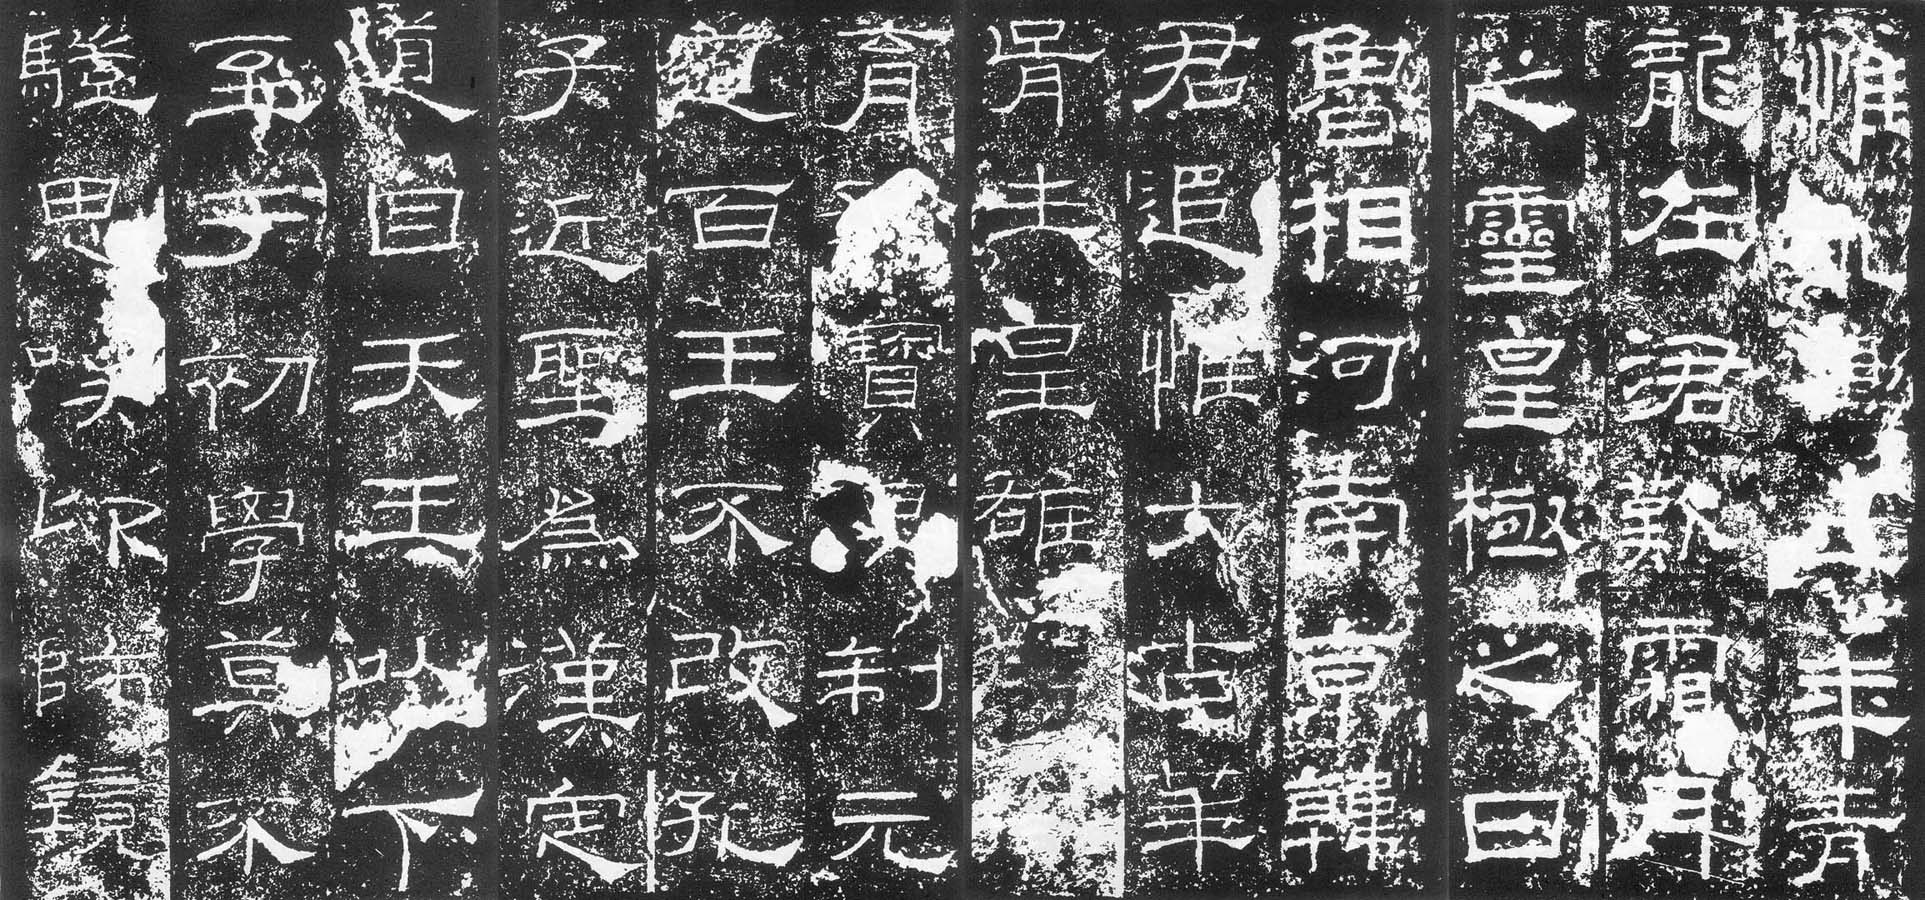 惟永壽二年青
龍在涒歎霜月
之靈皇極之日
魯相河南京韓
君追惟大古華
胥生皇雄顏
育寶俱制元
道百王不改孔
子近聖為漢定
道自天王以下
至于初學莫不
驥思嘆卬師鏡